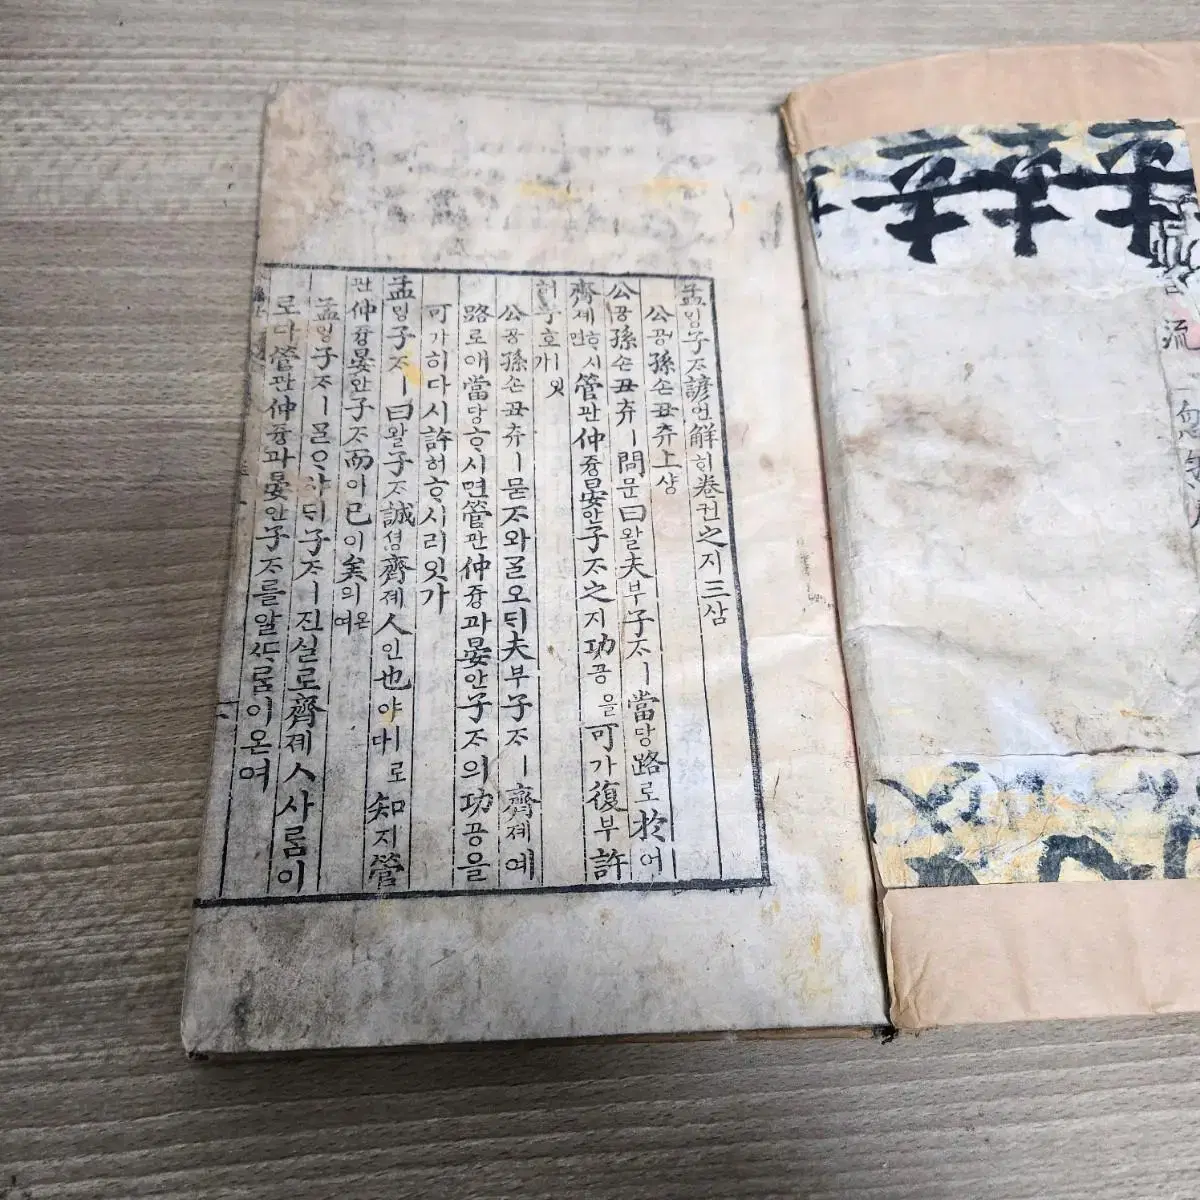 孟ᄆᆡᆼ子ᄌᆞ諺언解ᄒᆡ卷권之지三삼
公공孫손丑츄上샹
公공孫손丑츄ㅣ問문曰왈夫부子ᄌᆞㅣ當당路로於어
齊졔ᄒᆞ시면管관仲듕晏안子ᄌᆞ之지功공을可가復부許
허乎호ㅣ잇가
公공孫손丑츄ㅣ묻ᄌᆞ와ᄀᆞᆯ오ᄃᆡ夫부子ᄌᆞㅣ齊졔예
路로애當당ᄒᆞ시면管관仲듕과晏안子ᄌᆞ의功공을
可가히다시許허ᄒᆞ시리잇가
孟ᄆᆡᆼ子ᄌᆞㅣ曰왈子ᄌᆞ誠셩齊졔人인也야ㅣ로다知지管
관仲듕晏안子ᄌᆞ而이已이矣의온여
孟ᄆᆡᆼ子ᄌᆞㅣᄀᆞᆯᄋᆞ샤ᄃᆡ子ᄌᆞㅣ진실로齊졔人사ᄅᆞᆷ이
로다管관仲듕과晏안子ᄌᆞ를알ᄯᆞᄅᆞᆷ이온여
流